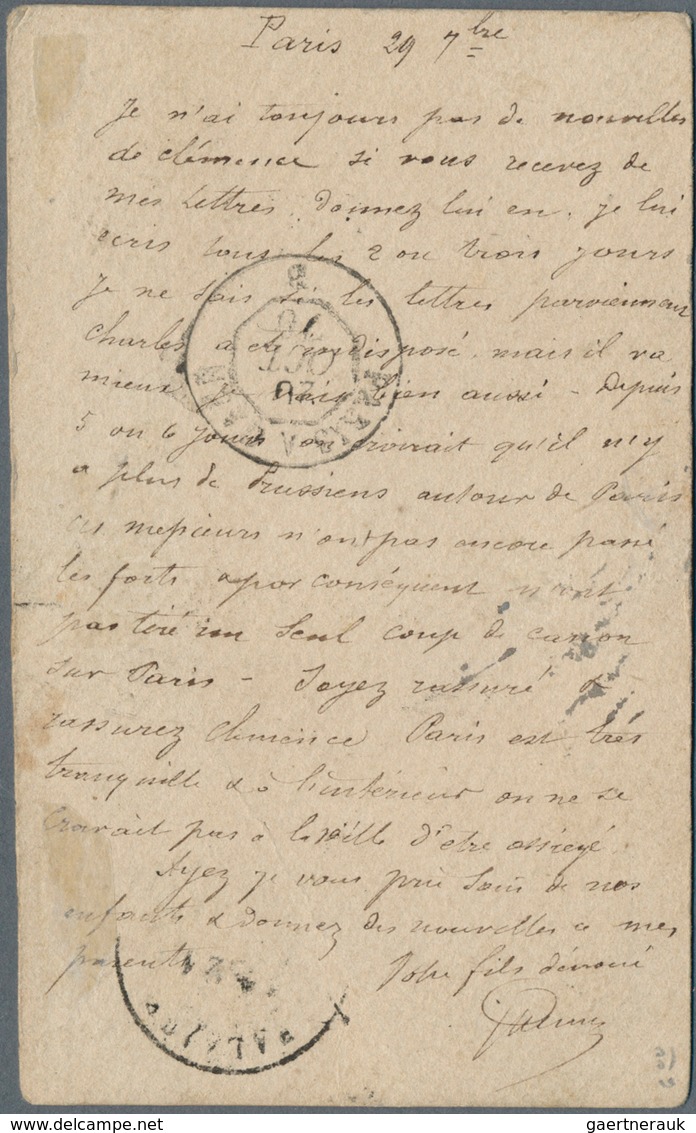 Paris 29 7bre
Je n'ai toujours pas de nouvelles
de clémence si vous recevez de
mes lettres donnez lui en. je lui
ecris tous les 2 ou trois jours
je ne sais si les lettres parviennent
Charles a été indisposé, mais il va
mieux je vais bien aussi - Depuis
5 ou 6 jours on croirait qu'il n'y
a plus de Prussiens autour de Paris
ces messieurs n'ont pas encore passé
les forts & par conséquent n'ont
pas tiré un seul coup de canon
sur Paris - Soyez rassuré &
rassurez clemence Paris est très
tranquille & à l'intérieur on ne se
croirait pas à la veille d'etre assiégé.
Ayez je vous prie soin de nos
enfants & donnez des nouvelles a mes
parents
Votre fils dévoué
gaertnerauk